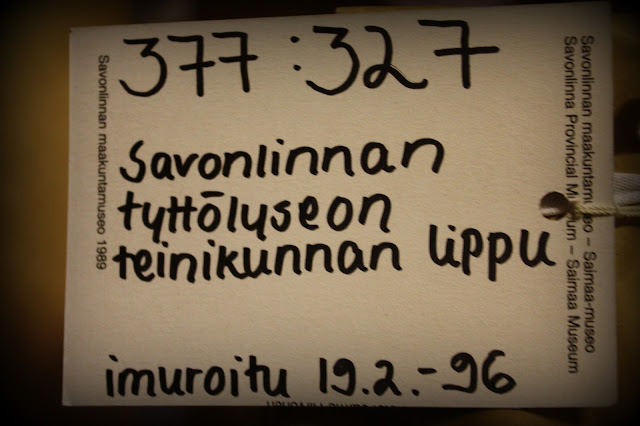 377:327
Savonlinnan
tyttölyseon
teinikunnan lippu
imuroitu 19.2.-96
Savonlinnan maakuntamuseo 1989
Savonlinnan maakuntamuseo – Saimaa-museo
Savonlinna Provincial Museum – Saimaa Museum